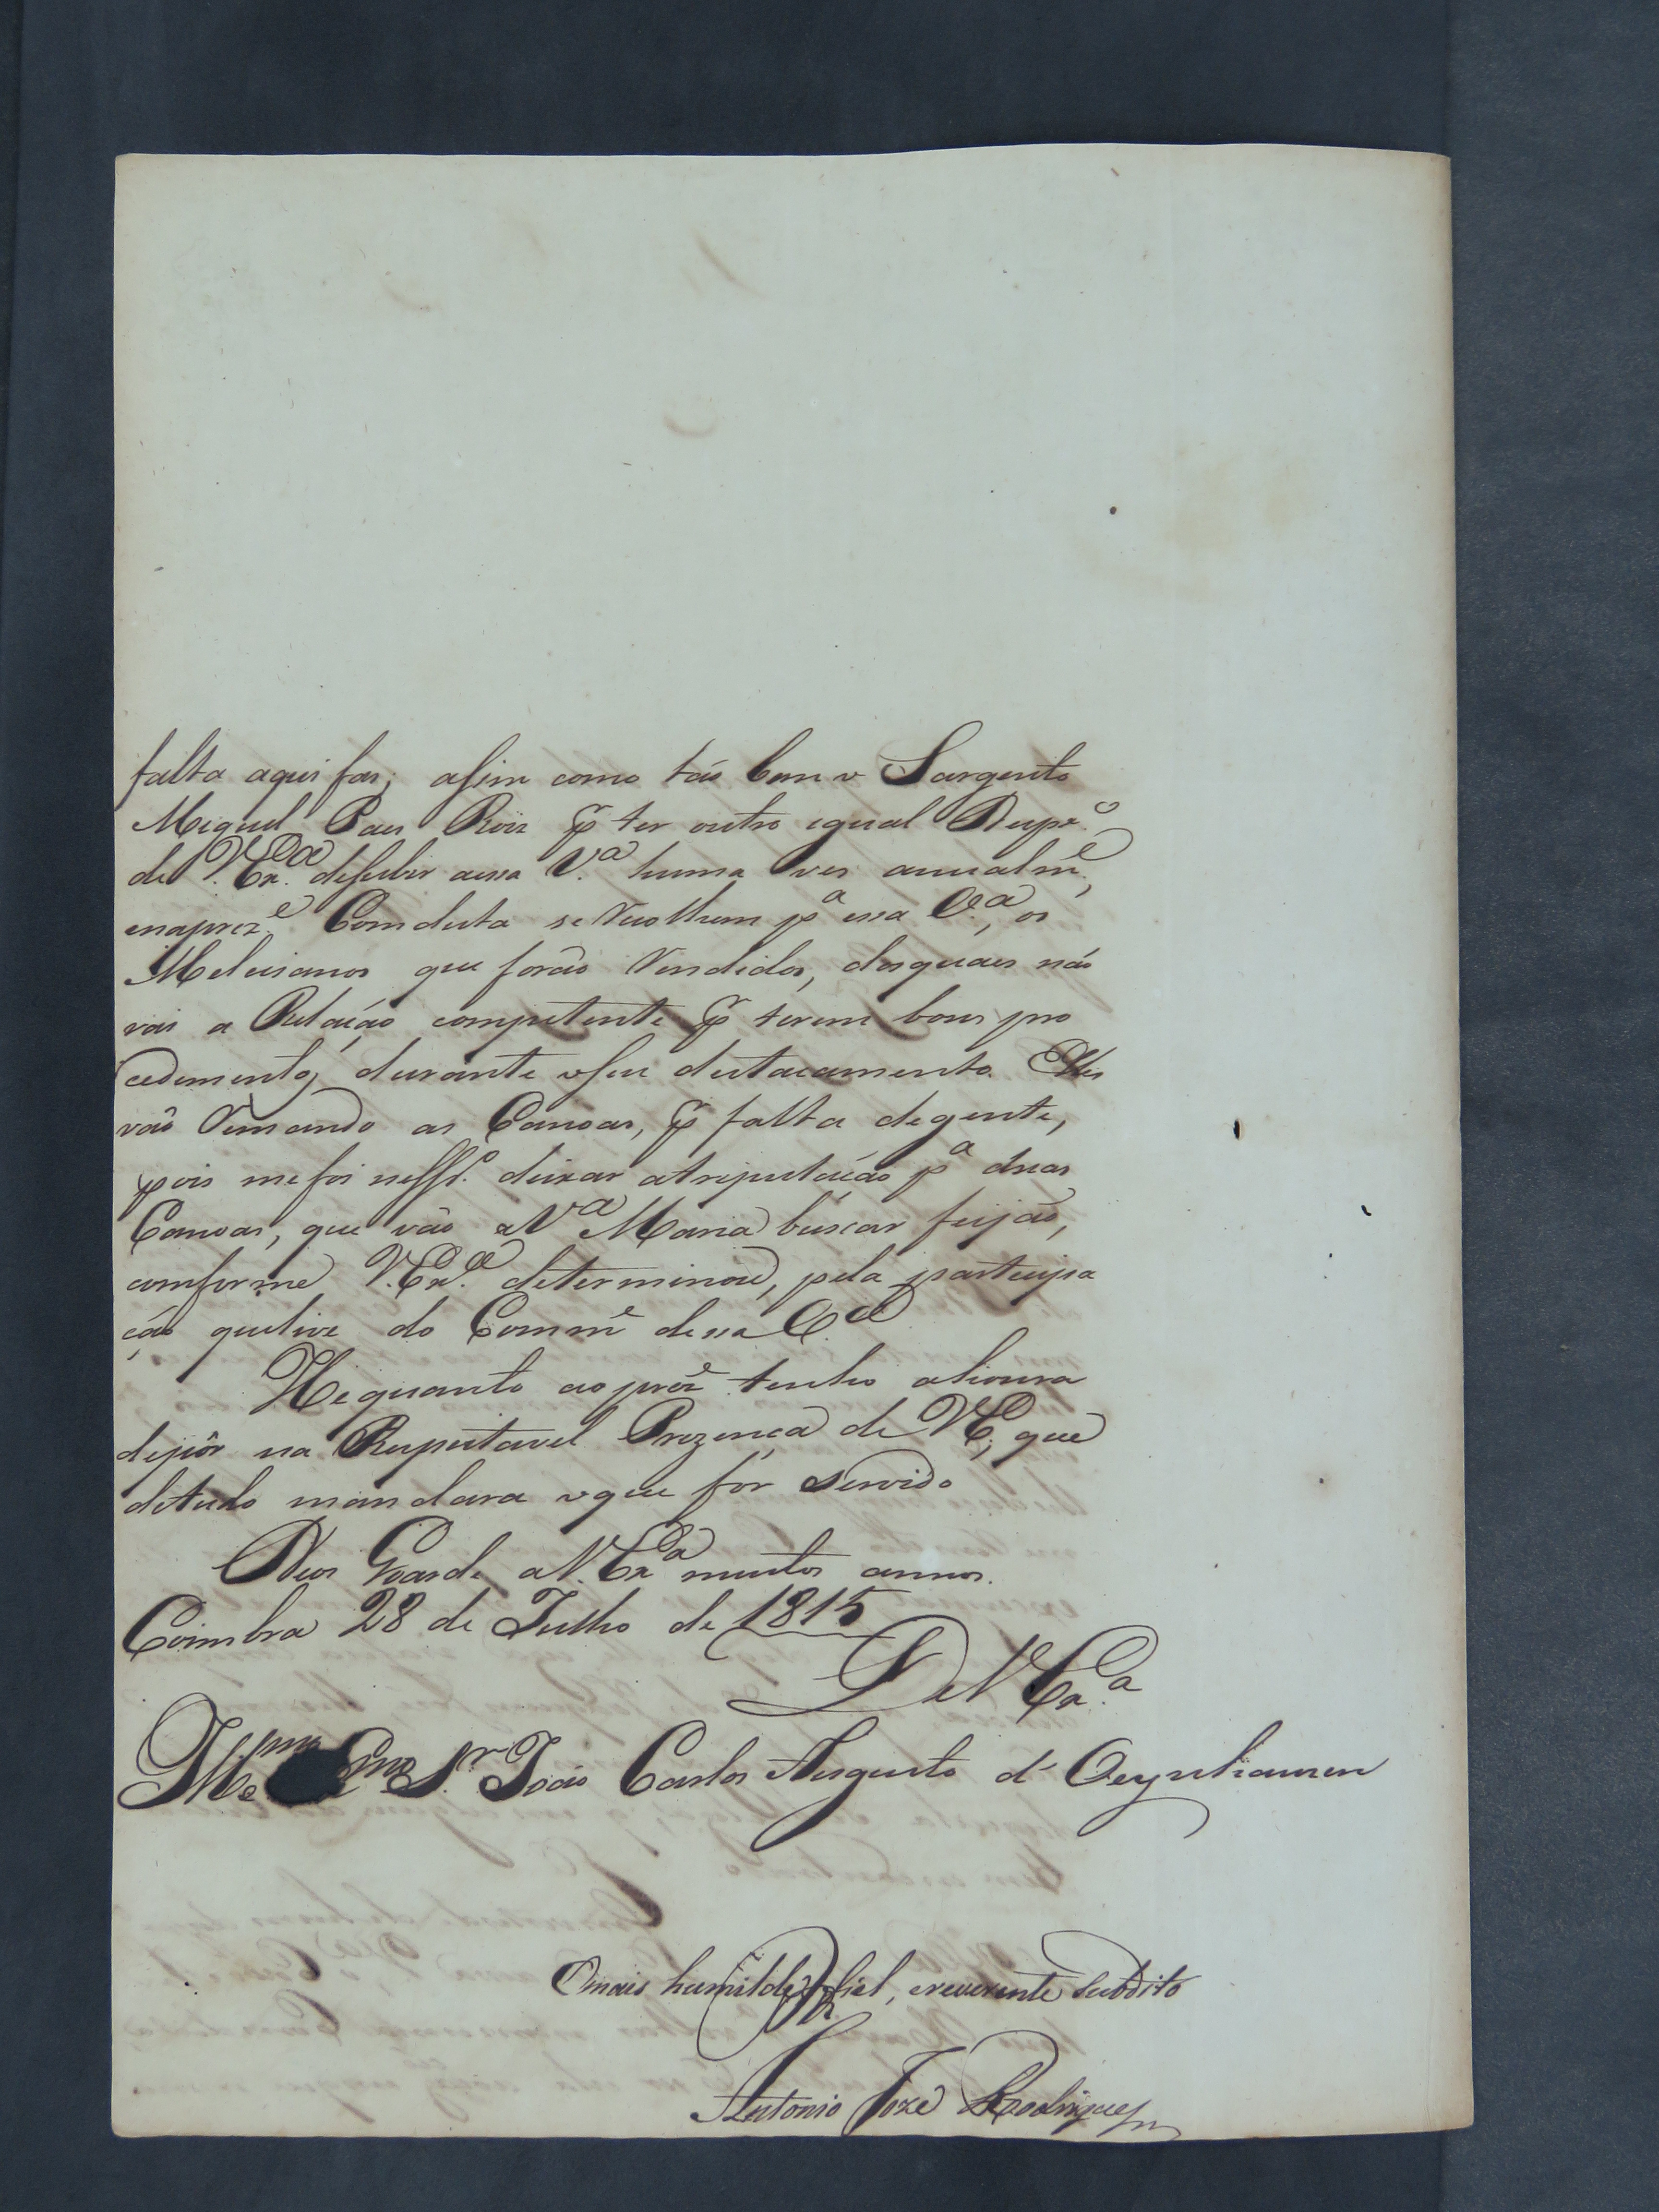 falta aqui fas; assim como táo bem o Sargento
Miguel Paes Roiz p.r ter outro igual Desp.o
de V. Ex.a desubir aessa V.a huma ves anualm.e,
enaprez.e Comduta se recolhem p.a essa V.a, os
Melicianos que foráo rendidos, dosquaes náo
vai a Relaçáo competente p.r terem bom pro
cedimento, durante oseu destacamento. Elles
váo remando as Canoas, p.r falta degente,
pois mefoi ness.o deixar atripulaçáo p.a duas
Canoas, que váo aV.a Maria buscar feijáo,
comforme V. Ex.a determinou, pela participa
çáo quetive do Comm.e dessa V.a
He quanto ao prez.e tenho ahonra
depôr na Respeitavel Prezença de V.E., que
detudo mandara oque for servido
Deos Goarde a V. Ex.a muitos annos.
Coimbra 28 de Julho de 1815
De V. Ex.a
Ill.mo Ex.mo S.r Joáo Carlos Augusto d' Oeynhausen
O mais humilde, fiel, ereverente Subdito
Antonio Joze Rodrigues